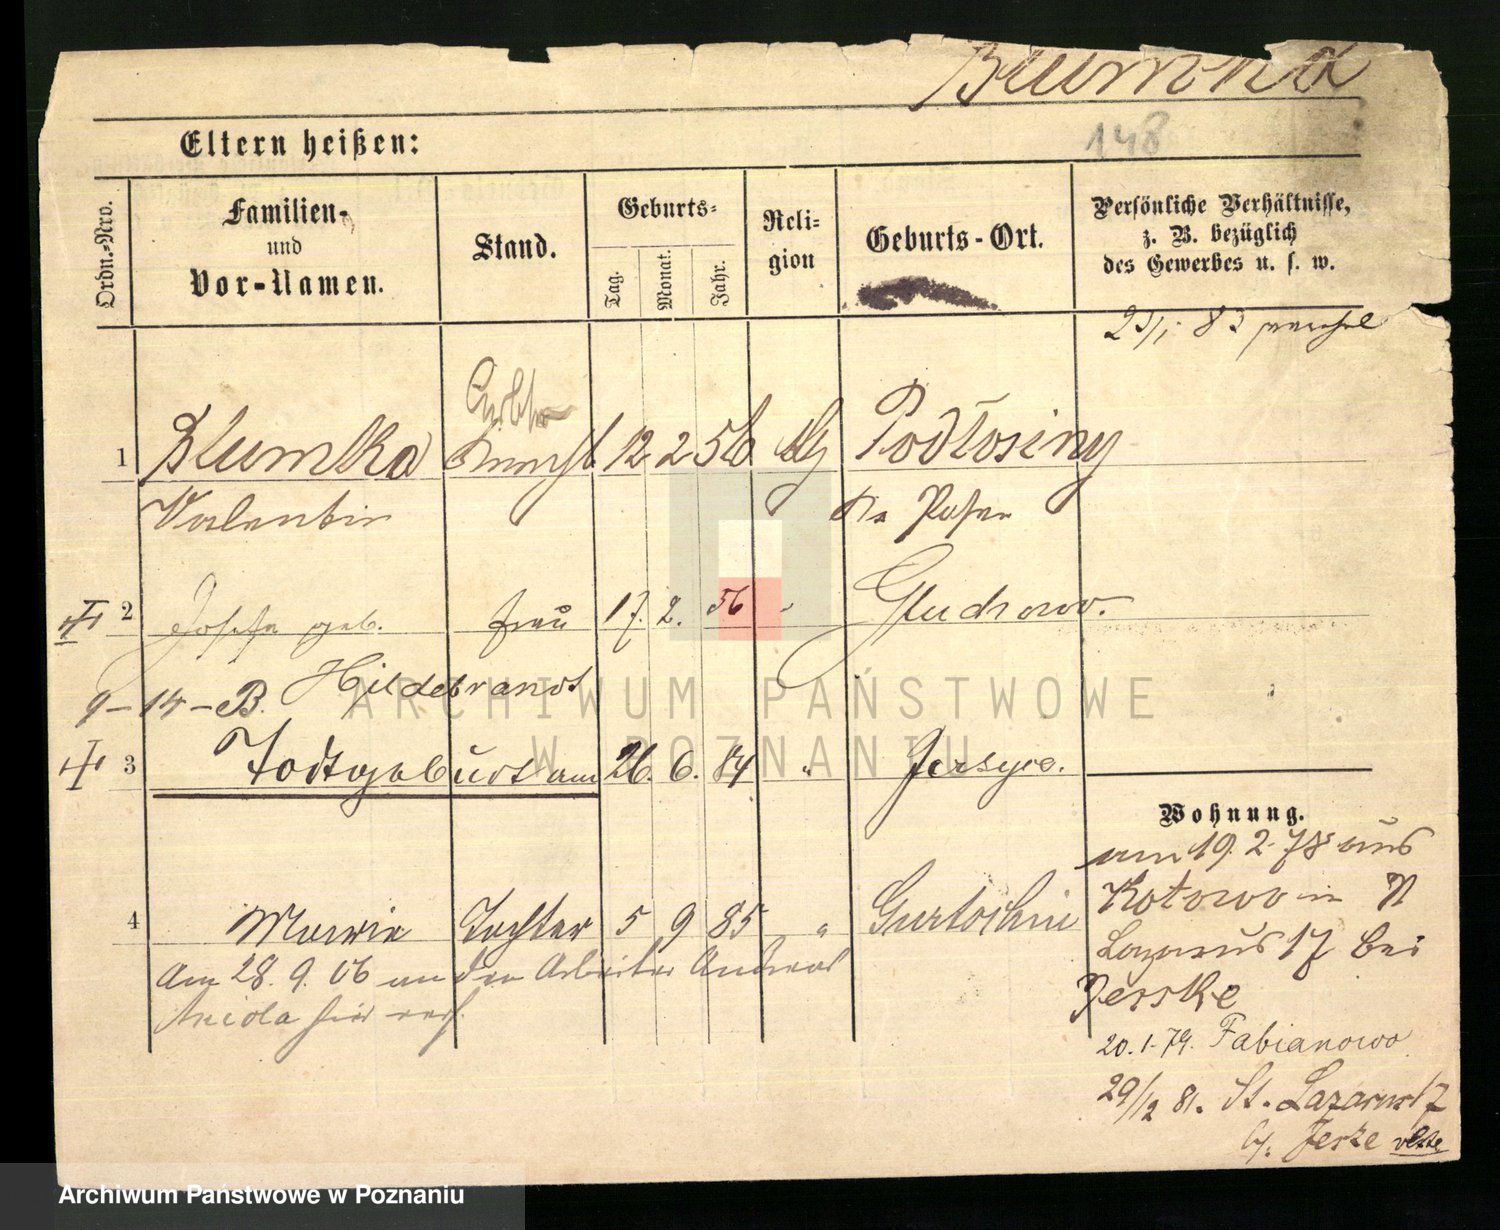 Blumka
148
Eltern heißen:
Ordn.-Nro.
Familien-
und
Vor-Namen.
Stand.
Geburts-
Tag.
Monat.
Jahr.
Reli-
gion
Geburts-Ort.
Persönliche Verhältnisse,
z. B. bezüglich
des Gewerbes u. s. w.
1 Blumka Knecht 12 2 56 Podłosiny
Valentin Kr Posen
2 Josefa geb. Frau 17. 2. 56 " Gluchowo.
9-14-B. Hildebrandt
3 Todtgeburt am 26. 6. 84 " Jersyce.
4 Marie Tochter 5 9 85 " Gurtschin
Am 28. 9. 06 an den Arbeiter Andreas
hier verh.
Wohnung.
am 19. 2. 78 aus
Kotowo in N
Lazarus 17 bei
Jesske
20. 1. 79. Fabianowo
29/12 81. St. Lazarus 17
b/. Jeske
ARCHIWUM PAŃSTWOWE
W POZNANIU
Archiwum Państwowe w Poznaniu